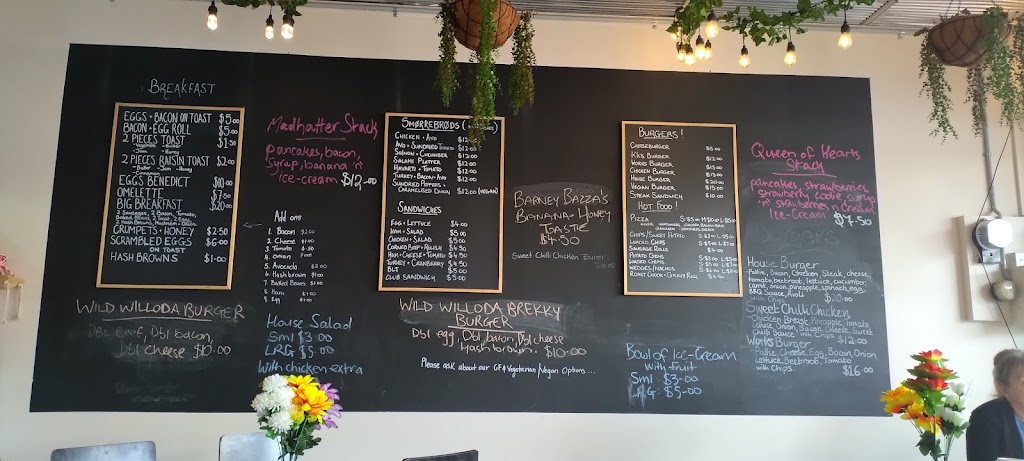 BREAKFAST
EGGS + BACON ON TOAST $5.00
BACON + EGG ROLL $5.00
2 PIECES TOAST $1.50
2 PIECES RAISIN TOAST $2.00
EGGS BENEDICT $10.00
OMELETTE $7.50
BIG BREAKFAST $20.00
2 Sausages, 2 Bacon, Tomato,
CRUMPETS + HONEY $2.50
SCRAMBLED EGGS $6.00
ON TOAST
HASH BROWNS $1.00
WILD WILLODA BURGER
Dbl Beef, Dbl bacon,
Dbl cheese $10.00
Madhatter Stack
pancakes, bacon,
syrup, banana 'n'
ice-cream $12.00
Add ons
1. Bacon $2.00
2. Cheese
3. Tomato
4. Onion Free
5. Avocado $2.00
6. Hash brown $1.00
7. Baked Beans $1.00
8. Ham
9. Egg
House Salad
Sml $3.00
LRG $5.00
With chicken extra
SMØRREBRØDS
CHICKEN + AVO $12.00
AVO + SUNDRIED TOMATO $12.00
SALMON + CUCUMBER $12.00
SALAMI PLATTER $12.00
HAVARTI + TOMATO $12.00
TURKEY + BACON + AVO $12.00
SUNDRIED PEPPERS +
CARAMELISED ONION $12.00
SANDWICHES
EGG + LETTUCE $4.00
HAM + SALAD $5.00
CHICKEN + SALAD $5.00
CORNED BEEF + RELISH $4.50
HAM + CHEESE + TOMATO $4.50
TURKEY + CRANBERRY $4.50
BLT $5.00
CLUB SANDWICH $5.00
WILD WILLODA BREKKY
BURGER
Dbl egg, Dbl bacon, Dbl cheese
Hash brown. $10.00
Please ask about our GF & Vegetarian Vegan Options...
BARNEY BAZZA'S
BANANA + HONEY
TOASTIE
$4.50
Sweet Chilli Chicken
BURGERS!
CHEESEBURGER
KK'S BURGER $12.00
WORKS BURGER
CHICKEN BURGER
HOUSE BURGER $20.00
VEGAN BURGER $15.00
STEAK SANDWICH $10.00
HOT FOOD!
PIZZA
CHIPS/SWEET POTATO
LOADED CHIPS
SAUSAGE ROLLS
POTATO GEMS
LOADED GEMS
WEDGES/NACHOS
ROAST CHOOK + GRAVY ROLL
Bowl of Ice-Cream
with fruit
Sml $3.00
LRG. $5.00
Queen of Hearts
Stack
pancakes, strawberries,
strawberry syrup
'n' strawberries 'n' cream
Ice-Cream $7.50
House Burger
- Pattie, Bacon, Chicken, Steak, cheese,
tomato, beetroot, lettuce, cucumber,
carrot, onion, pineapple, spinach, egg,
BBQ Sauce, Aioli
with Chips $20.00
Sweet Chilli Chicken
- Chicken Breast, Pineapple, Tomato,
Lettuce, Onion, Bacon, Cheese, Sweet
Chilli Sauce with Chips $12.00
Works Burger
- Pattie, Cheese, Egg, Bacon, Onion,
Lettuce, Beetroot, Tomato
with Chips. $16.00